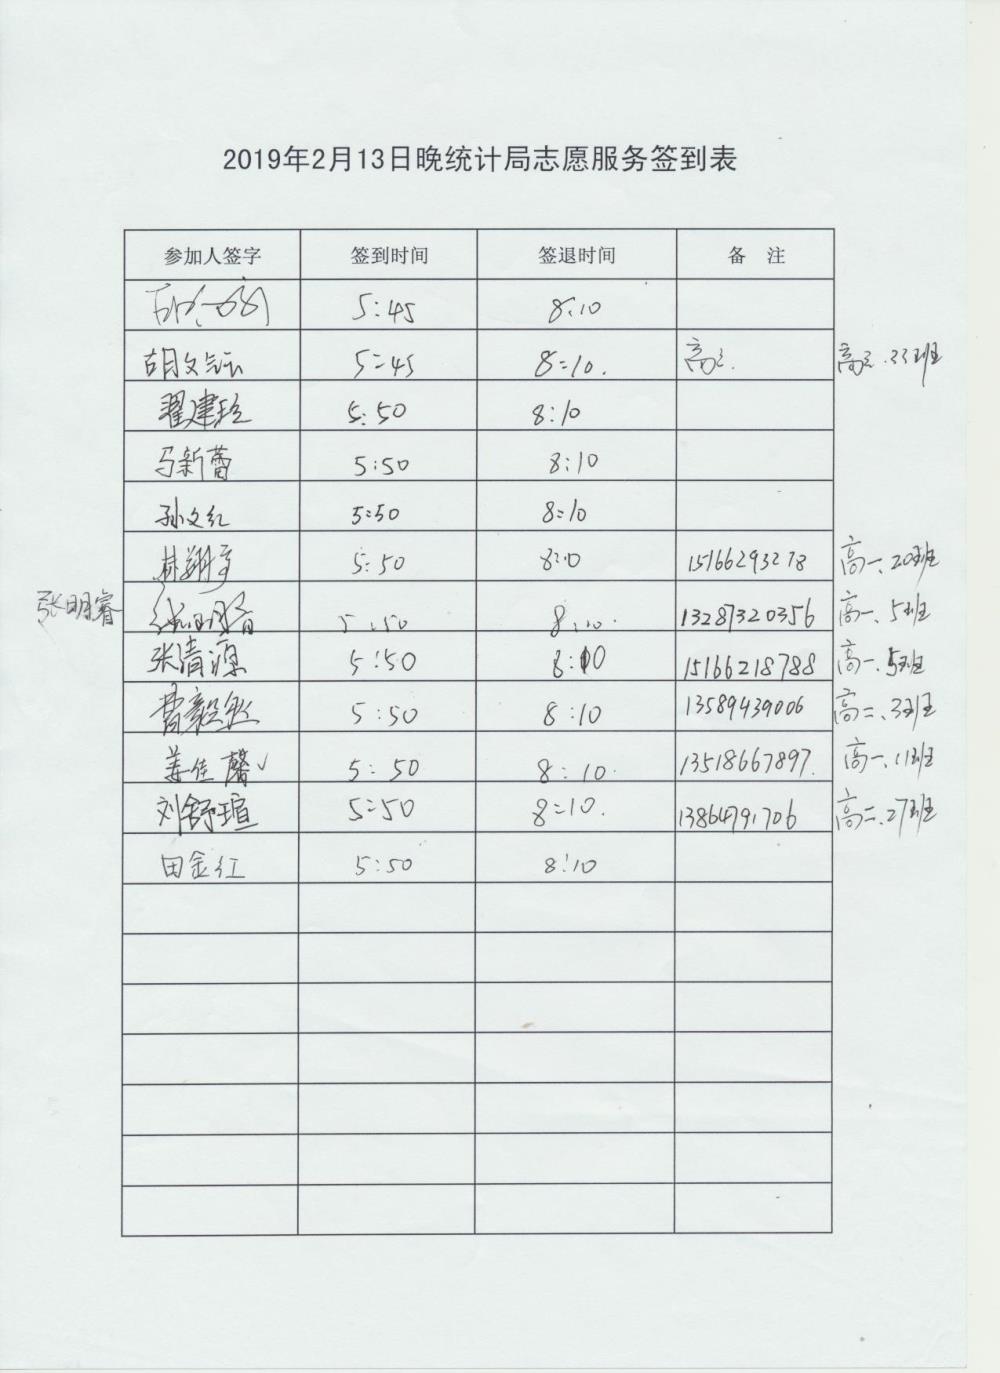 2019年2月13日晚统计局志愿服务签到表
参加人签字 签到时间 签退时间 备 注
5:45 8:10
胡文 5:45 8:10. 高三. 高三.33班
翟建玲 5:50 8:10
马新蕾 5:50 8:10
孙文红 5:50 8:10
林翔宇 5:50 8:10 15166293278 高一、20班
张明睿 张明睿 5:50 8:10 13287320356 高一、5班
张清源 5:50 8:10 15166218788 高一、5班
曹毅 5:50 8:10 13589439006 高二、3班
姜佳馨√ 5:50 8:10. 13518667897. 高一、11班
刘舒瑄 5:50 8:10. 13864791706 高二、27班
田金红 5:50 8:10